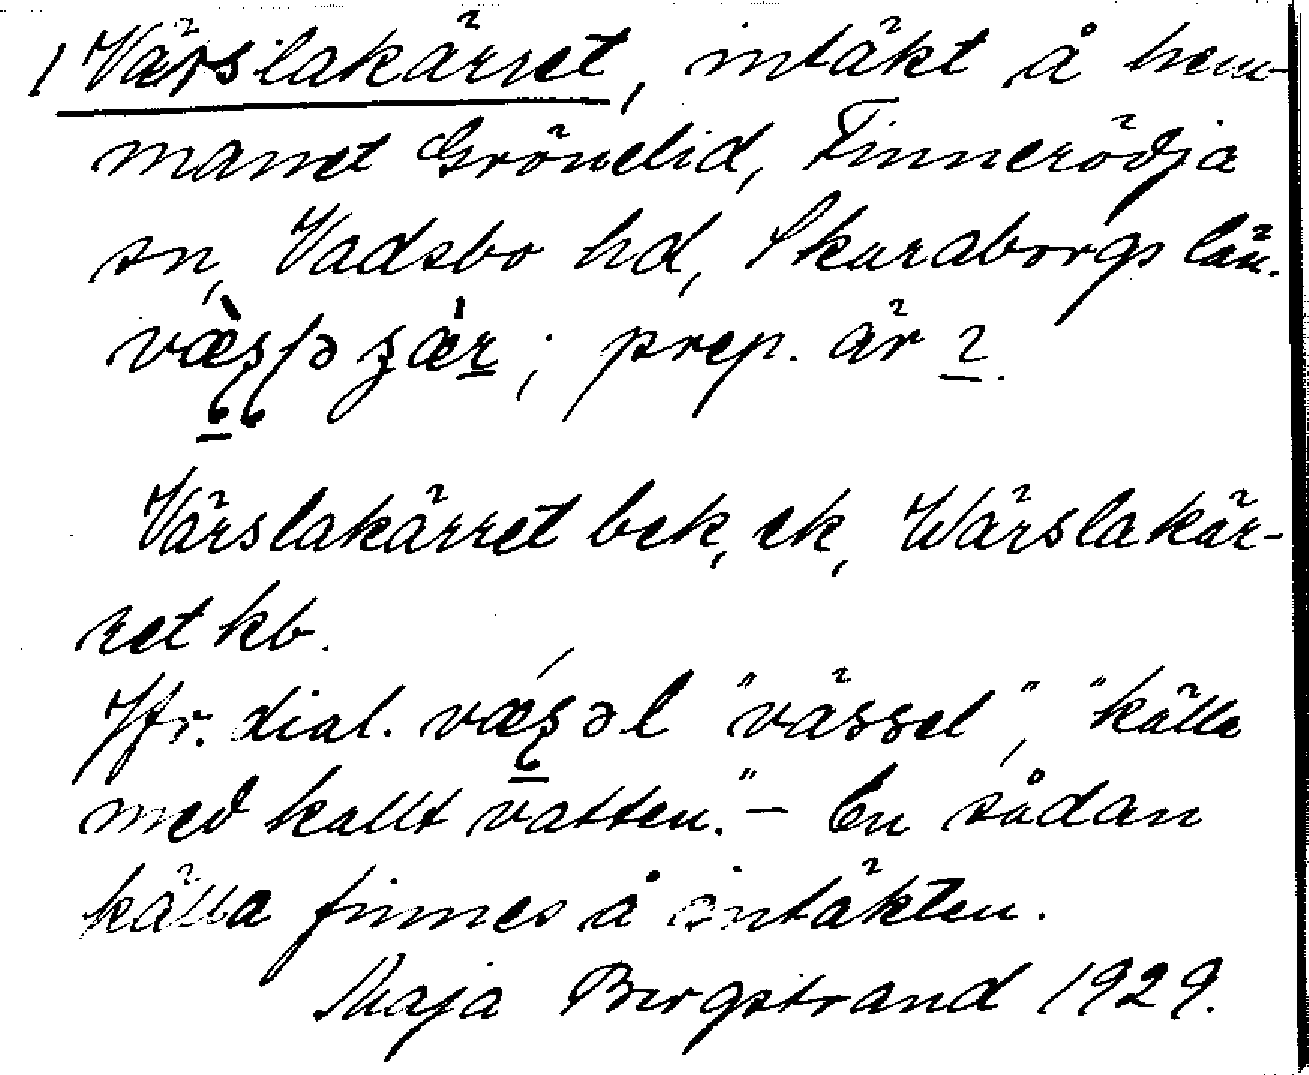 1 Värslakärret, intäkt å hem-
manet Grönelid, Finnerödja
sn, Vadsbo hd, Skaraborgs län.
; prep. är ı.
Värslakärret bek, ek, Wärslakär-
ret kb.
Jfr. dial. "vässel", "källa
med kallt vatten." – En sådan
källa finnes å intäkten.
Maja Bergstrand 1929.